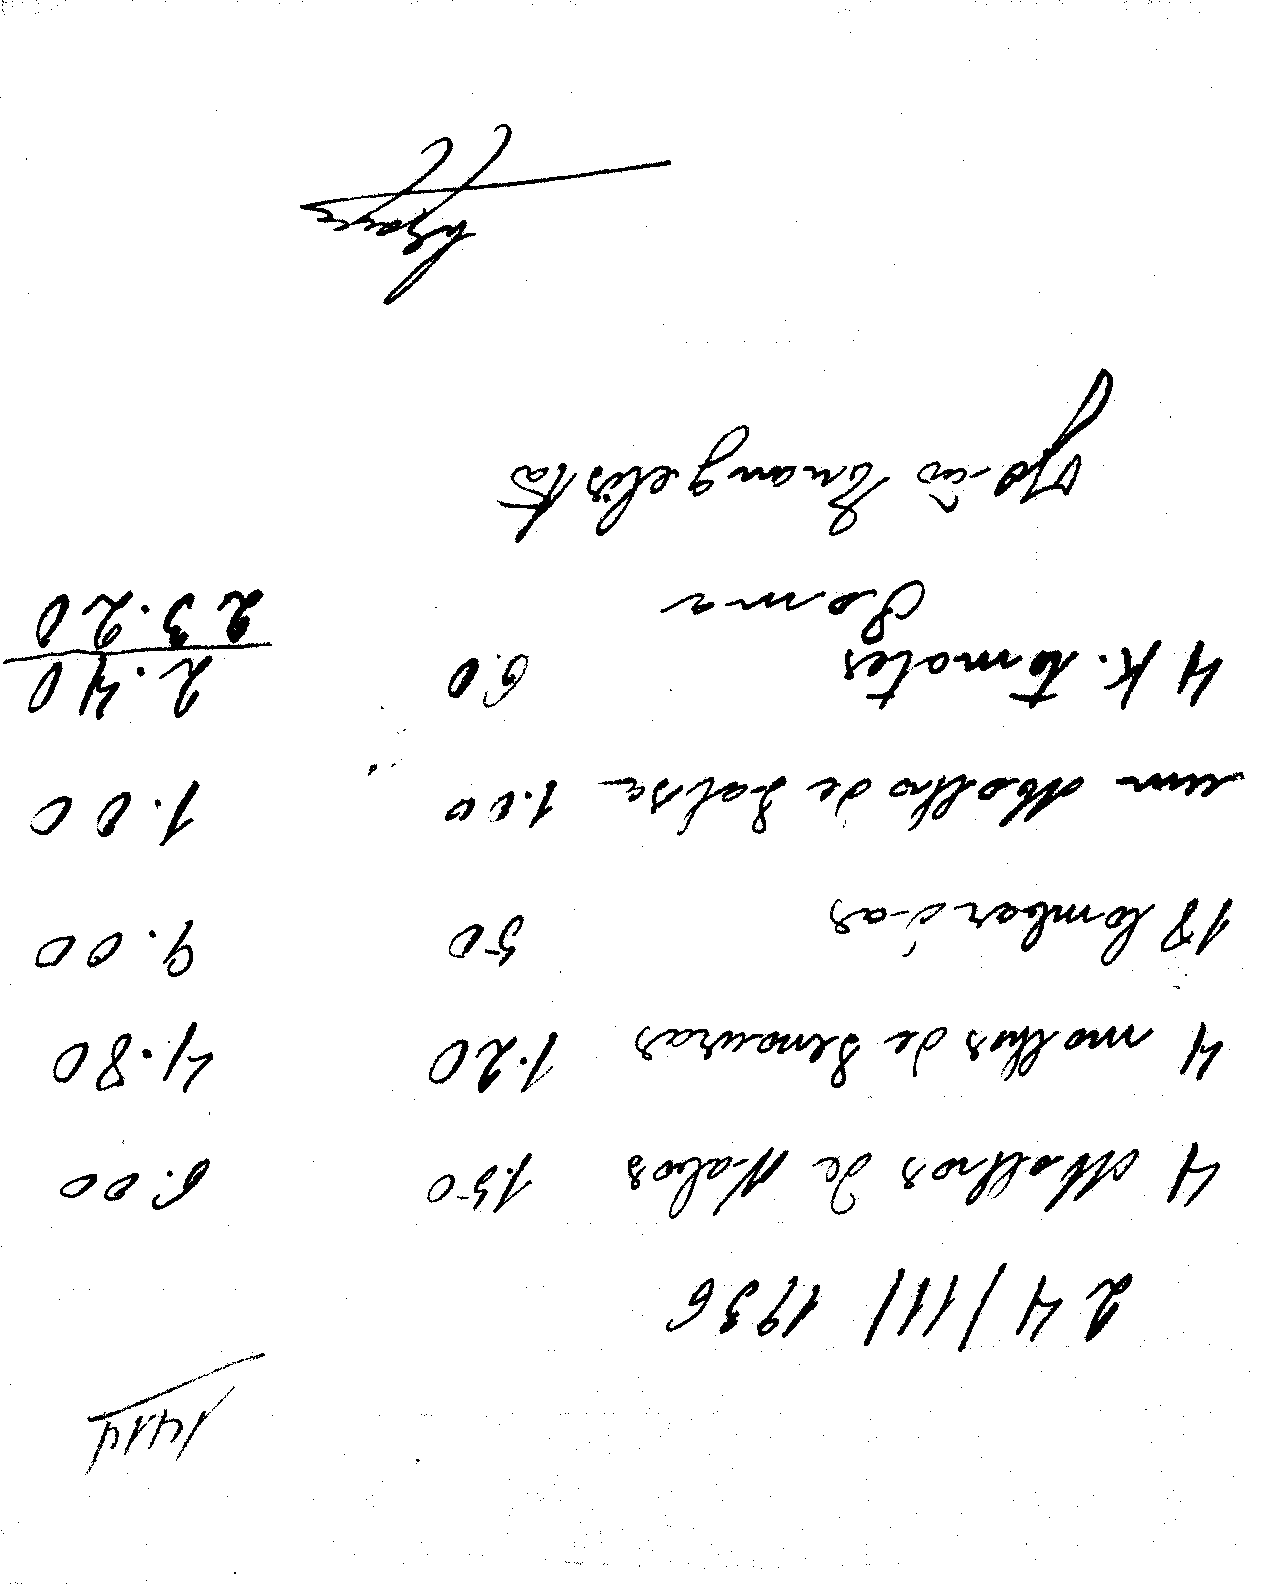 1414
24/111/1936
4 Molhos de Nabos 1.50 6.00
4 molhos de Senouras 1.20 4.80
18 Lombardas 50 9.00
um Molho de Salsa 1.00 1.00
4 K. tomates 60 2.40
Soma 23.20
João Evangelista